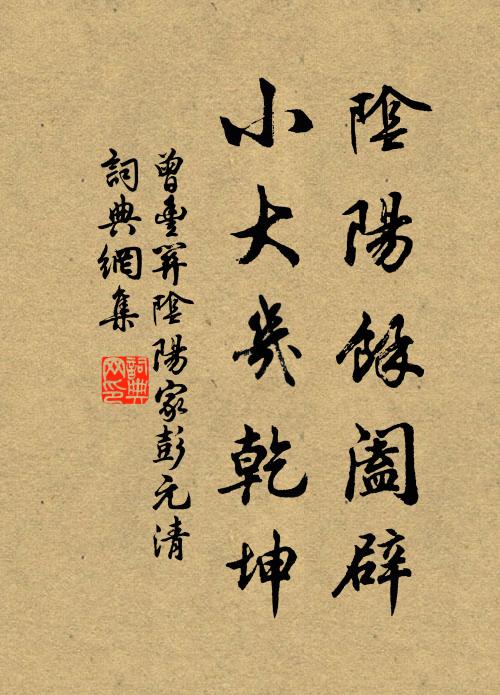 陰陽餘闔辟
小大幾乾坤
曾豐陰陽家彭元清
詞典網集
詞典网印